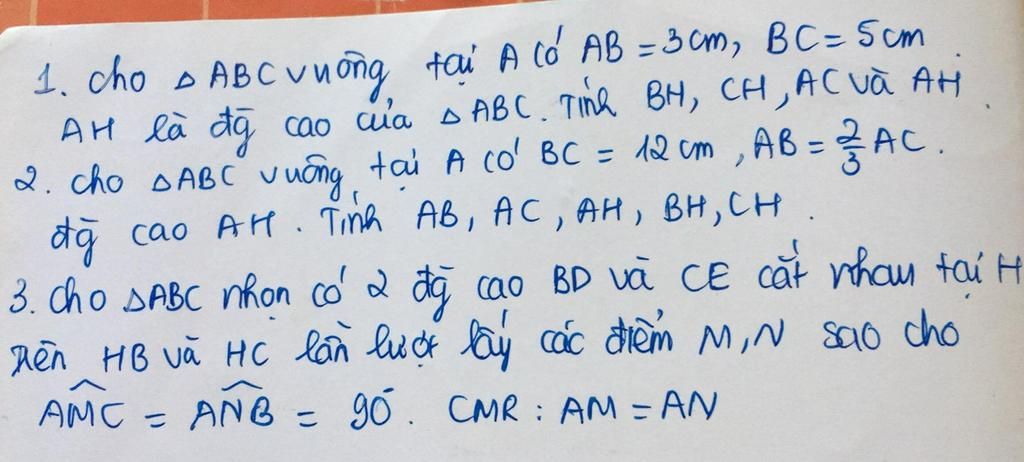 1. Cho △ABC vuông tại A có AB = 3cm, BC = 5cm.
AH là đg̃ cao của △ABC. Tính BH, CH, AC và AH.
2. Cho △ABC vuông tại A có BC = 12cm, AB = 2/3 AC.
đg̃ cao AH. Tính AB, AC, AH, BH, CH.
3. Cho △ABC nhọn có 2 đg̃ cao BD và CE cắt nhau tại H
trên HB và HC lần lượt lấy các điểm M,N sao cho
\widehat{AMC} = \widehat{ANB} = 90°. CMR : AM = AN